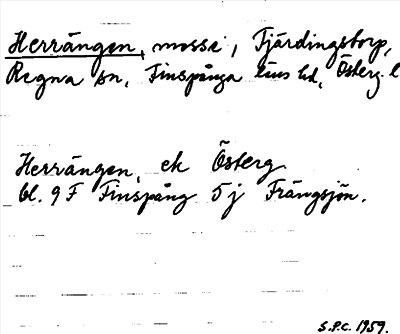 Herrängen, mosse, Fjärdingstorp,
Regna sn, Finspånga läns hd, Österg. l
Herrängen, ek Österg
bl. 9 F Finspång 5 j Frängsjön.
S.P.C. 1959.